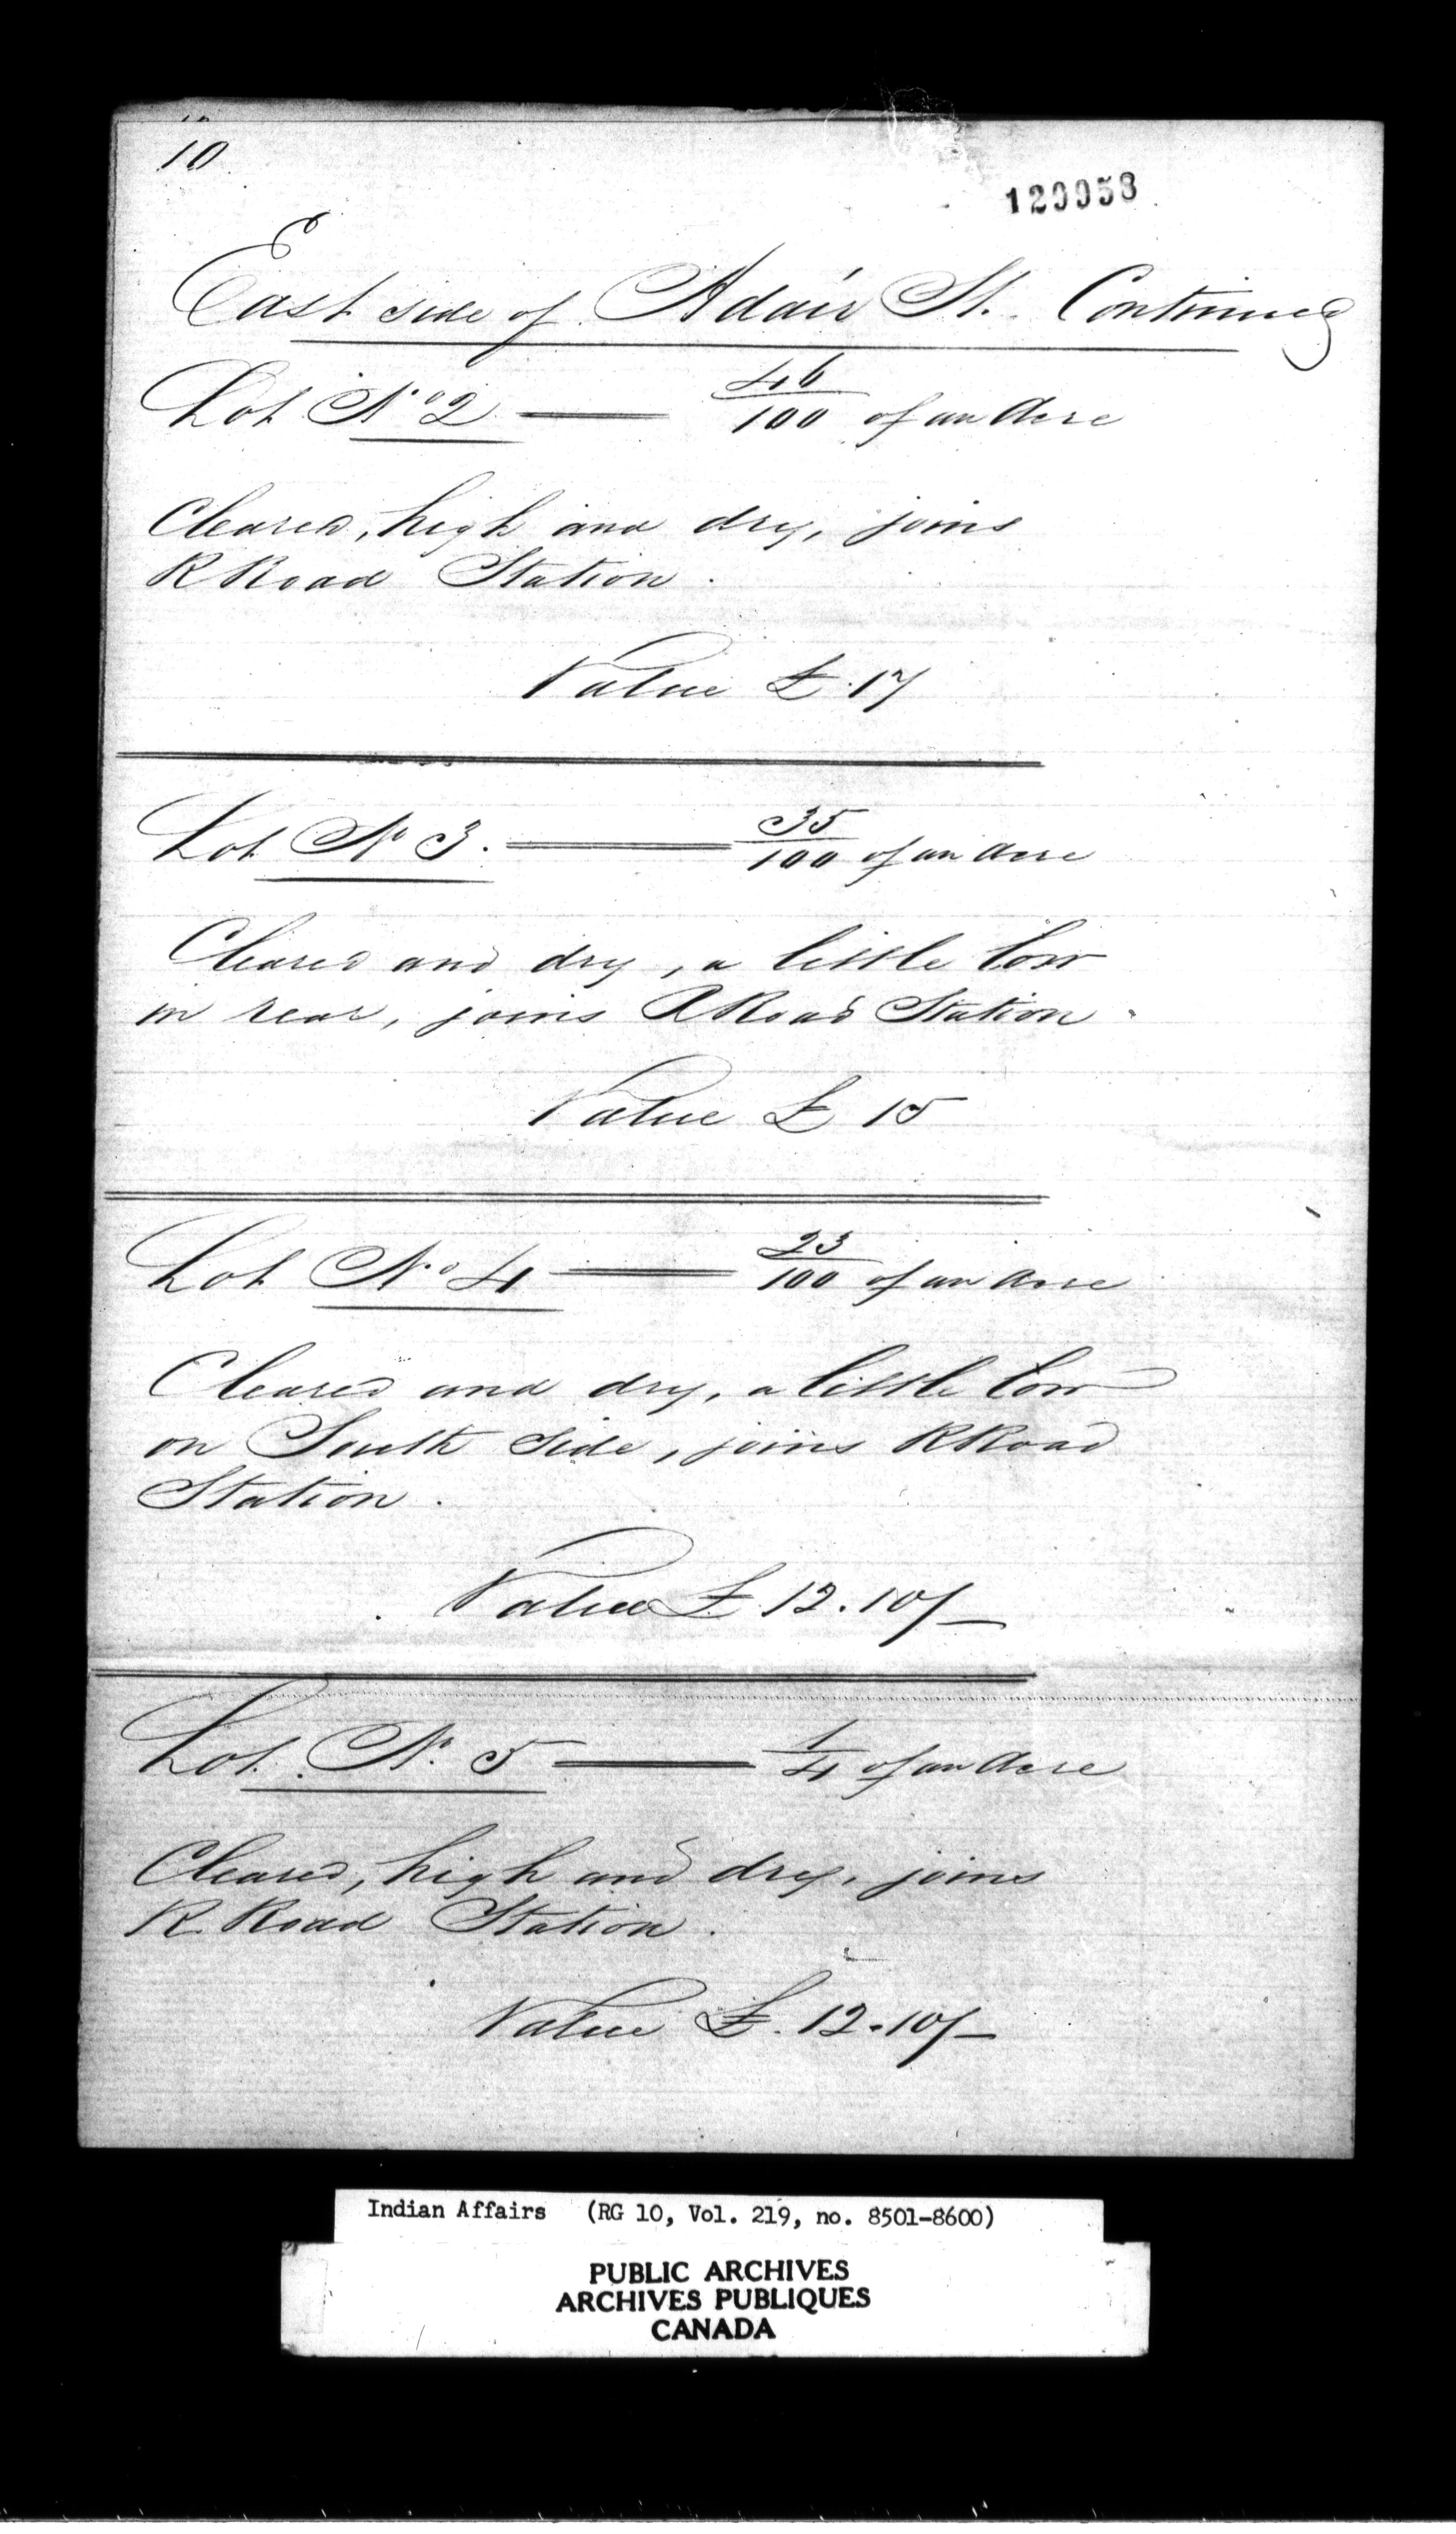 10
129958
East side of Adair St. Continued
Lot No 2 — 46/100 of an Acre
Cleared, high and dry, joins
R Road Station.
Value £.17
Lot No 3. — 35/100 of an Acre
Cleared and dry, a little low
in rear, joins R Road Station.
Value £ 15
Lot No 4 — 23/100 of an Acre
Cleared and dry, a little low
on South side, joins R Road
Station.
Value £ 12.10/-
Lot No. 5 — 1/4 of an Acre
Cleared, high and dry, joins
R. Road Station.
Value £. 12.10/-
Indian Affairs (RG 10, Vol. 219, no. 8501-8600)
PUBLIC ARCHIVES
ARCHIVES PUBLIQUES
CANADA